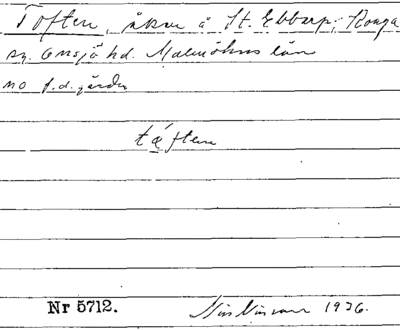 Toften, åker å St. Ebbarp, Konga
sn. Onsjö hd. Malmöhus län
no f.d. gården
táften
Nr 5712.
1936.